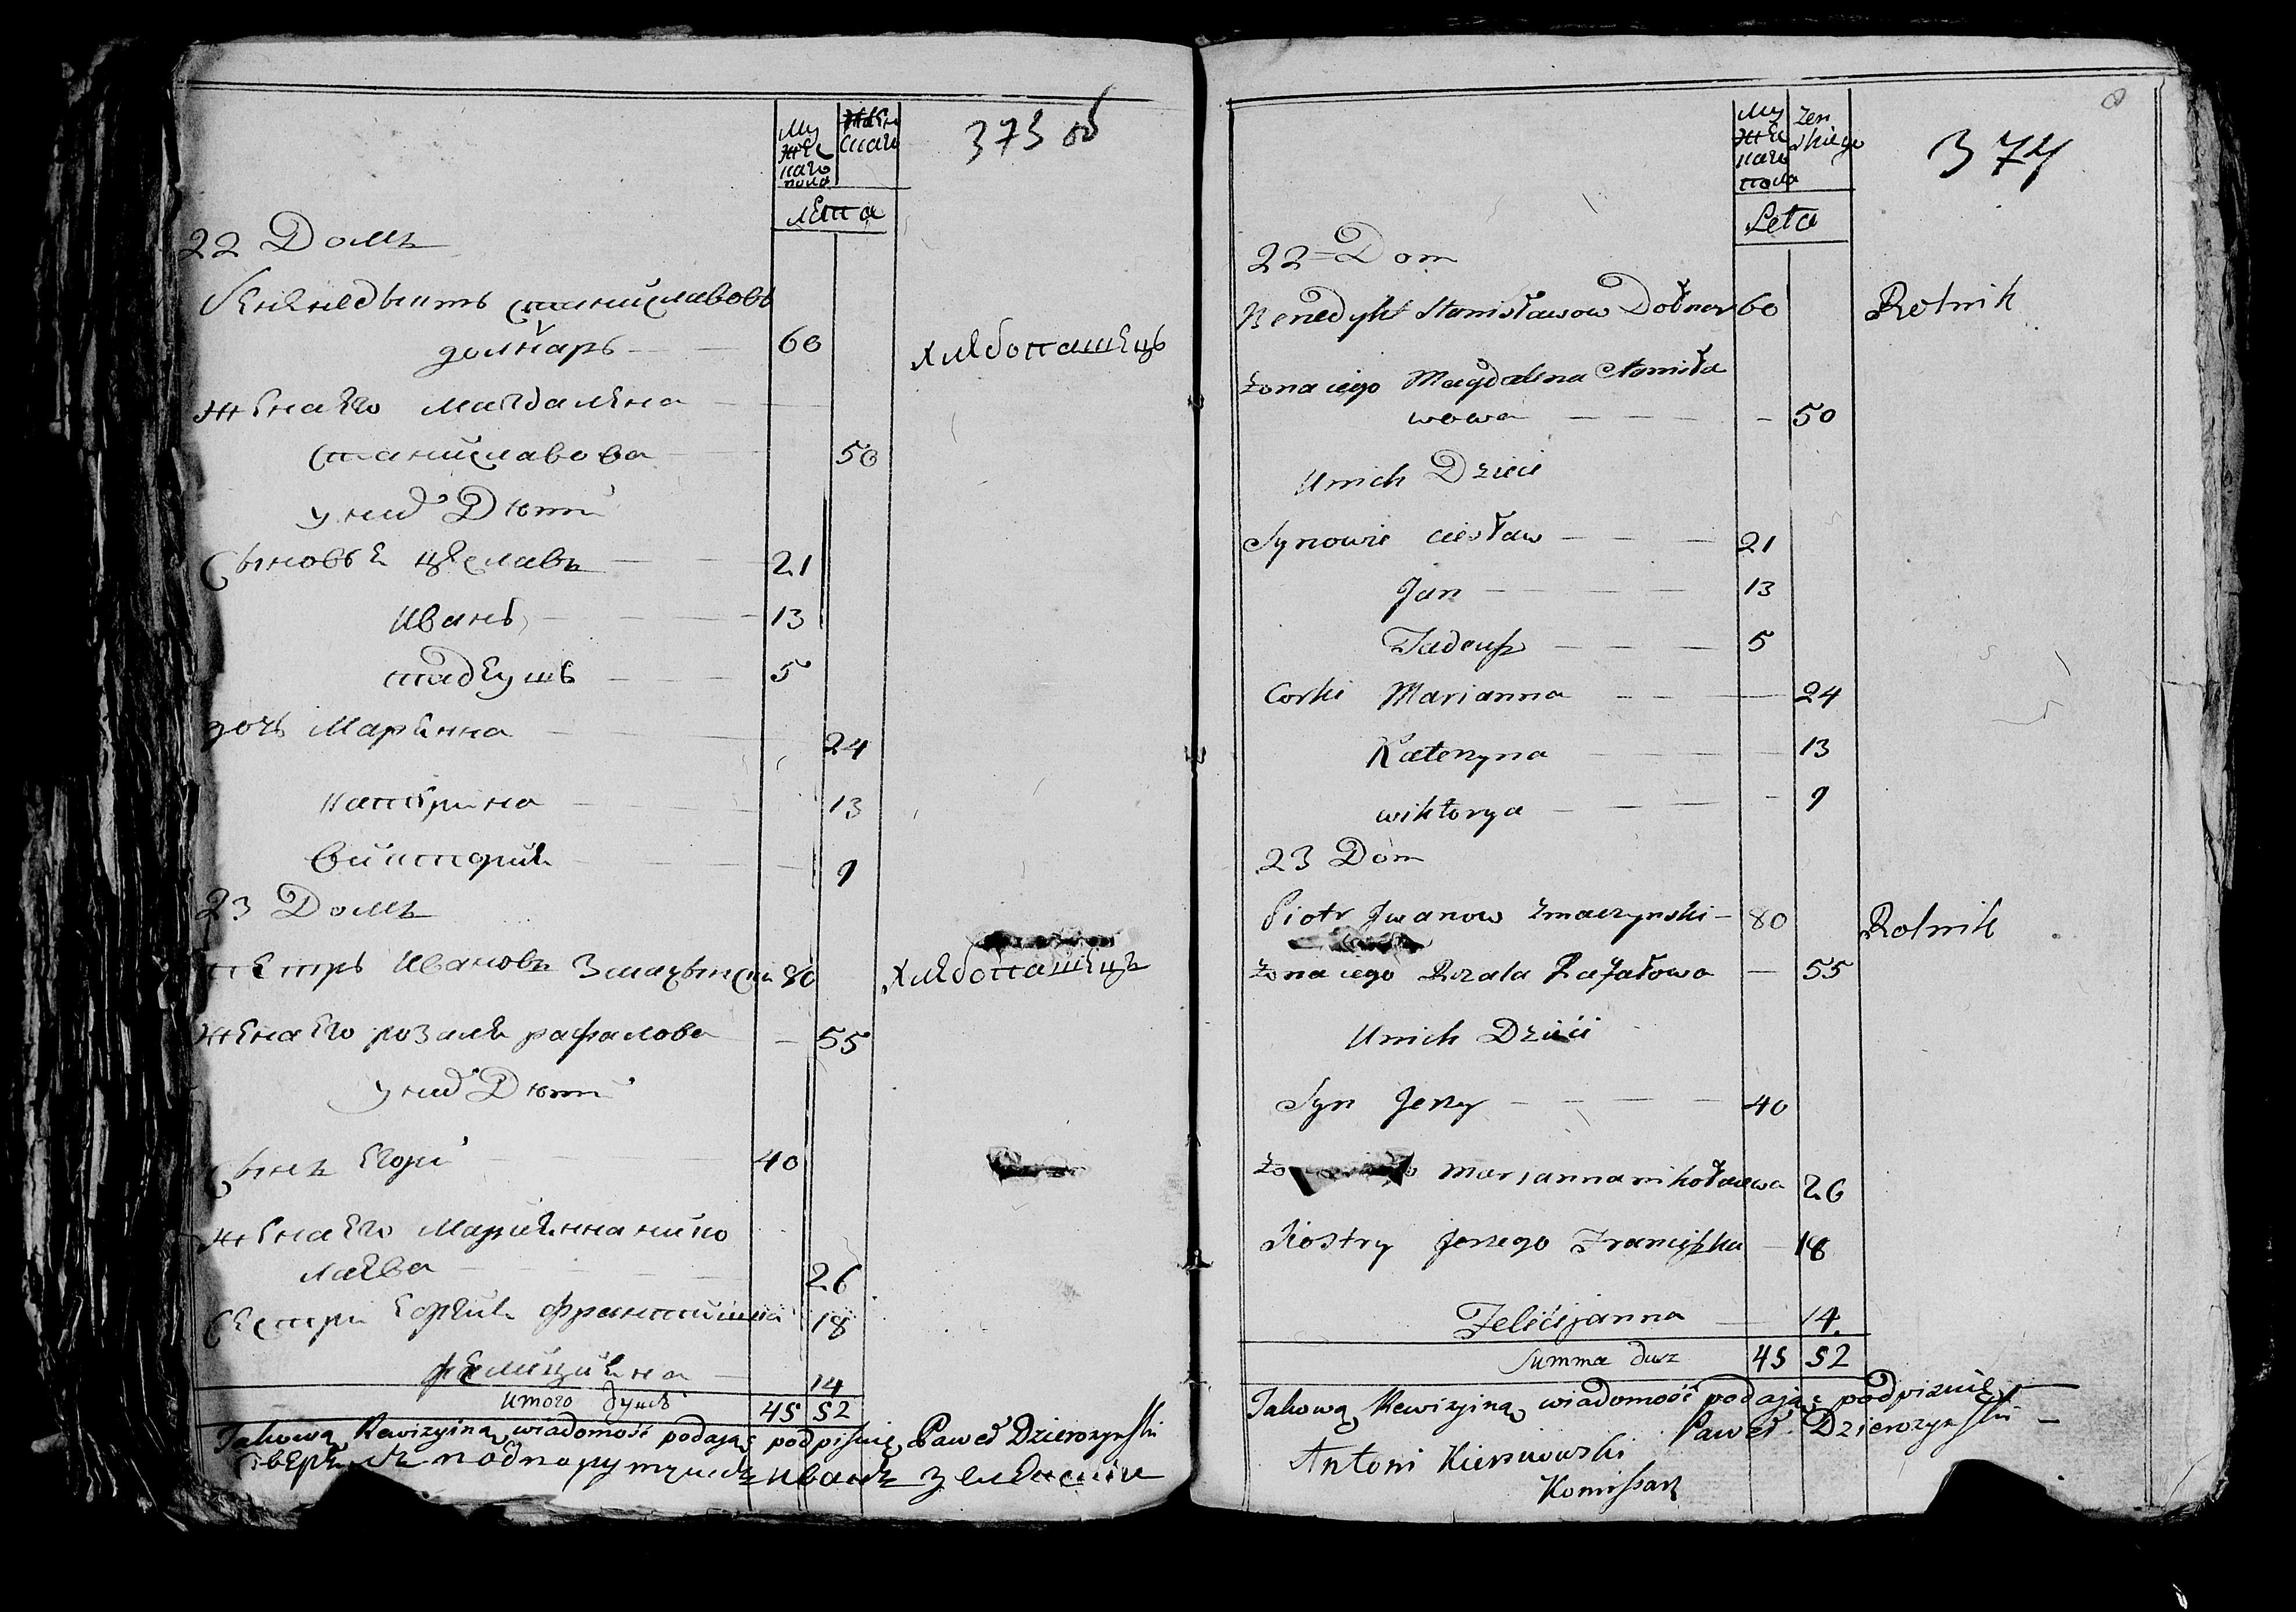 373 об
Му
жес
каго
пола
женскаго
лѣта
22 Домъ
Бенедыктъ станиславовъ
долнаръ 60 хлѣбопашецъ
жена его магдалена
станиславова 50
у нихъ Дѣти
Сыновъя цеславъ 21
иванъ 13
тадеушъ 5
дочь Марянна 24
катерина 13
виктория 9
23 Домъ
петръ ивановъ Змачынски 80 хлѣбопашецъ
жена его розаля рафалова 55
у нихъ Дѣти
сынъ Егорй 40
жена его Марианна нико
лаева 26
сестри Егория францишка 18
фелициянна 14
итого душъ 45 52
Takową Rewizyiną wiadomość podając podpisuię Paweł Dzierozynski
подпорутчикъ иванъ
374
Му
жес
каго
пола
żen
skiego
Leta
22 Dom
Benedykt Stanisławow Dołnar 60 Rolnik
żona iego Magdalena Stanisła
wowa 50
Unich Dzieci
Synowie ciesław 21
Jan 13
Tadeusz 5
Corki Marianna 24
Katerzyna 13
wiktorya 9
23 Dom
Piotr Jwanow Zmaczynski 80 Rolnik
żona iego Rozala Rafałowa 55
Unich Dzieci
Syn Jerzy 40
żo Marjanna nikołaiewa 26
Siostry Jerzego Franciszka 18
Felicijanna 14
Summa dusz 45 52
Takową Rewizyiną wiadomość podając podpisuię
Paweł Dzierozynski
Antoni Kiersnowski
Komissarz